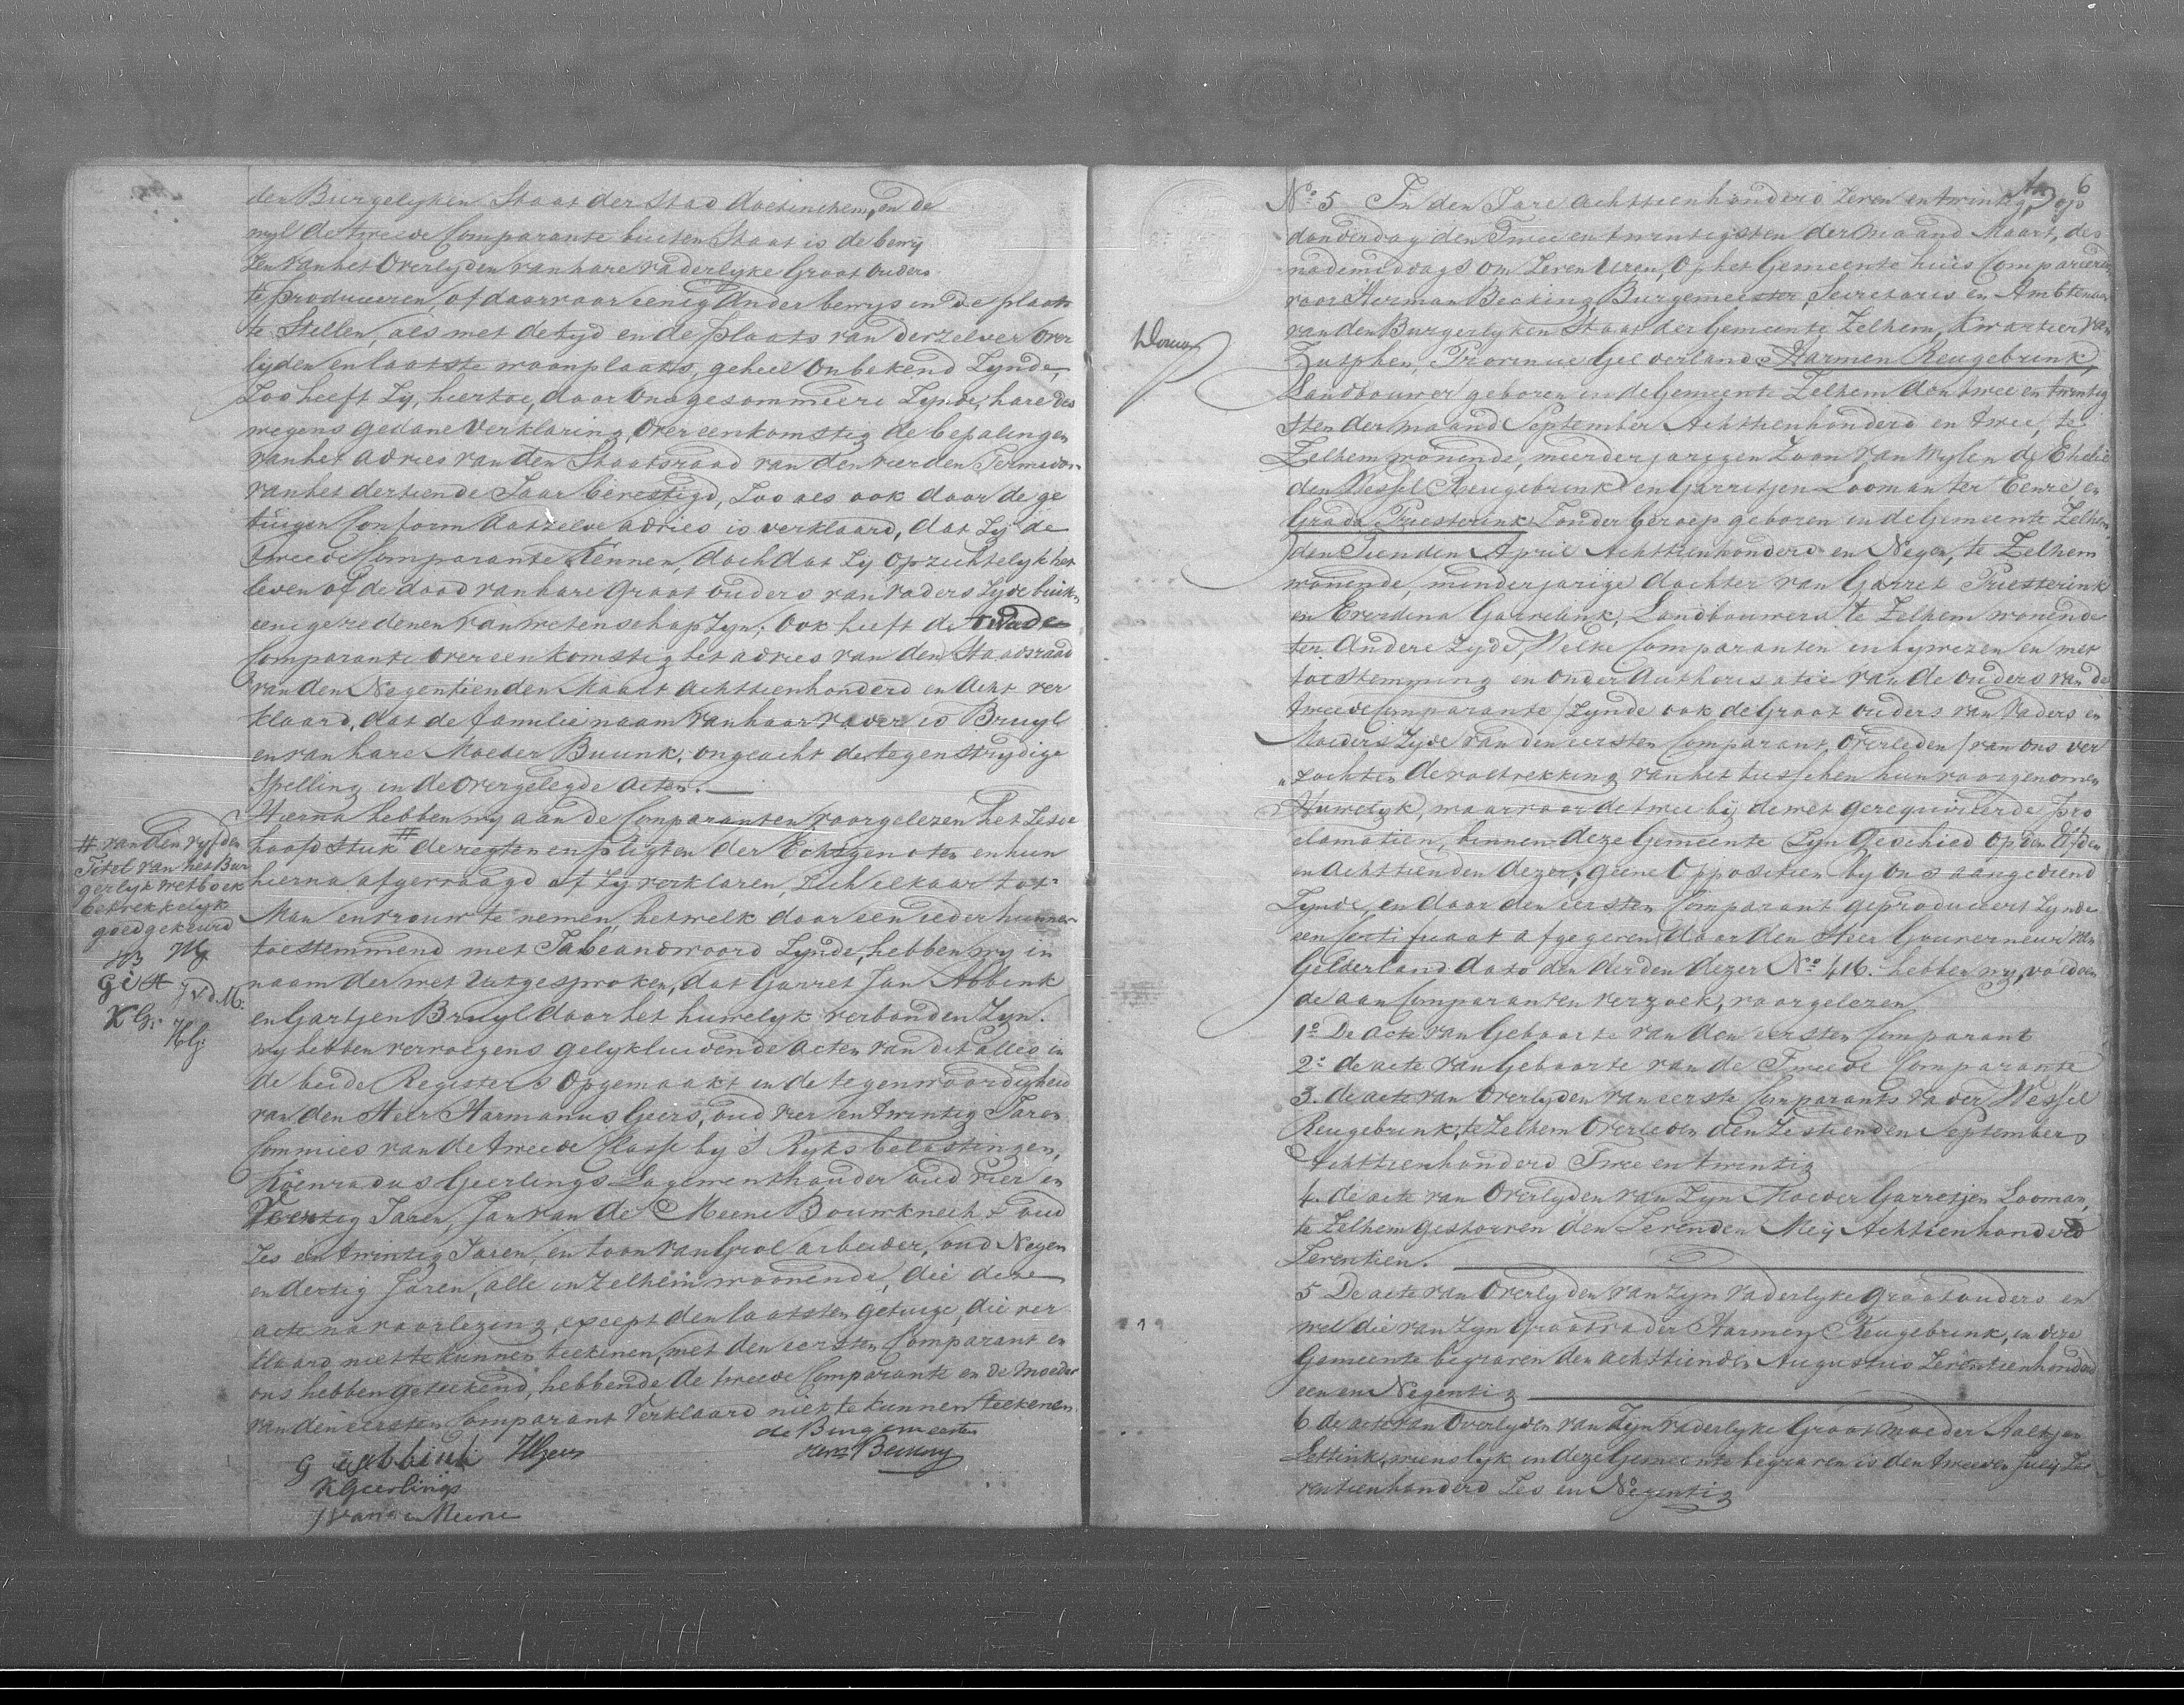 den Burgelyken Staat der Stad Doetinchem, en de
wyl de tweede Comparante buiten Staat is de bewy
zen van het Overlyden van hare vaderlyke Groot ouders
te produceeren, of daarvoor eenig Ander bewys in de plaats
te Stellen, als met de tyd en de plaats van derzelver Over
lyden en laatste woonplaats, geheel Onbekend Zynde,
Zoo heeft Zy, hiertoe, door Ons gesommeerd Zynde, hare des
wegens gedane Verklaring Overeenkomstig de bepalingen
van het advies van den Staatsraad van den vierden Termidor
van het dertiende Jaar bevestigd, Zoo als ook door de ge
tuigen Conform datzelve advies is verklaard, dat Zy de
tweede Comparante Kennen, doch dat Zy Opzichtelyk het
leven of de dood van hare Groot ouders van vaders Zyde buiten
eenige redenen van wetenschap Zyn; Ook heeft de tweede
Comparante Overeenkomstig het advies van den Staadsraad
van den Negentienden Maart Achttienhonderd en Acht ver
klaard, dat de familie naam van haar vader is Bruyl
en van hare Moeder Buunk, ongeacht de tegenstrydige
Spelling in de Overgelegde Acten.
Hierna hebben wy aan de Comparanten voorgelezen het Zesde
hoofdstuk # de regten en pligten der Echtgenoten en hun
hierna afgevraagd of Zy verklaren, Zich elkaar tot
Man en vrouw te nemen, hetwelk door een ieder hunner
toestemmend met Ja beandwoord Zynde, hebben wy in
naam der wet Uitgesproken, dat Garret Jan Abbink
en Gartjen Bruyl door het huwelyk verbonden Zyn.
wy hebben vervolgens gelykluidende acten van dit alles in
de beide Registers Opgemaakt in de tegenwoordigheid
van den Heer Harmanus Geers, oud vier en twintig Jaren
Commies van de tweede Classe by S Ryks belastingen,
Koenradus Geerlings Logementhouder oud vier en
Veertig Jaren, Jan van de Meene Bouwknecht oud
Zes en twintig Jaren, en toon van Grol arbeider, oud Negen
en dertig Jaren, alle in Zelhem woonende, die deze
acte na voorlezing, except den laatsten getuige, die ver
klaard niet te kunnen teekenen, met den eersten Comparant en
ons hebben geteekend, hebbende de tweede Comparante en de moeder
van den eersten Comparant Verklaard niet te kunnen teekenen.
de Burgemeester
G J Abbink HGeers Herm Becking
KGeerlings
J van de Meene
# van den vyfden
Titel van het Bur
gerlyk wetboek
betrekkelyk
goedgekeurd
HB
J v d M.
KG
6
No 5 In den Jare Achttienhonderd Zeven en twintig, op
donderdag den Twee en twintigsten der maand Maart, des
nademiddags om Zeven Uren, Op het Gemeente huis Compareeren
voor Herman Becking, Burgemeester, Secretaris en Ambtenaar
van den Burgerlyken Staat der Gemeente Zelhem, Kwartier van
Zutphen, Provincie Gelderland Harmen Reugebrink,
Landbouwer geboren in de Gemeente Zelhem den twee en twintig
sten der maand September Achttienhonderd en twee, te
Zelhem wonende, meerderjarigen Zoon van wylen de Ehelie
den Wessel Reugebrink en Garretjen Looman ter Eenre en
Grada Priesterink Zonder beroep geboren in de Gemeente Zelhem
den Tienden April Achttienhonderd en Negen, te Zelhem
wonende, minderjarige dochter van Garret Priesterink
en Everdina Garrelink, Landbouwers te Zelhem wonende
ter Andere Zyde, Welke Comparanten in bywezen en met
toestemming en onder Authorisatie van de ouders van de
tweede Comparante / Zynde ook de Groot ouders van Vaders en
Moeders Zyde van den eersten Comparant, Overleden / van ons ver
zochten de voltrekking van het tusschen hun voorgenomen
Huwelyk, waarvoor de twee bij de wet gerequireerde pro
clamatien, binnen deze Gemeente Zyn Geschied op den Elfden
en Achttienden dezer; geene Oppositien by Ons aangediend
Zynde, en door den eersten Comparant geproduceert Zynde
een Certificaat afgegeven door den Heer Gouverneur van
Gelderland dato den derden dezer No 416. hebben wy, voldoen
de aan Comparanten verzoek, voorgelezen
1o De acte van Geboorte van den eersten Comparant
2o de acte van Geboorte van de Tweede Comparante
3. de acte van Overlyden van eerste Comparants vader Wessel
Reugebrink, te Zelhem Overleden den Zestienden September
Achttienhonderd Twee en twintig
4. de acte van Overlyden van Zyn Moeder Garretjen Looman,
te Zelhem gestorven den Zevenden Meij Achttienhonderd
Zeventien.
5 De acte van Overlyden van Zyn vaderlyke Grootouders en
wel die van Zyn Grootvader Harmen Reugebrink, in deze
Gemeente begraven den achttienden Augustus Zeventienhonderd
een en Negentig
6 de acte van Overlyden van Zyn vaderlyke Grootmoeder Aaltjen
wiens lyk in deze Gemeente begraven is den tweeden July Ze
ventienhonderd Zes en Negentig